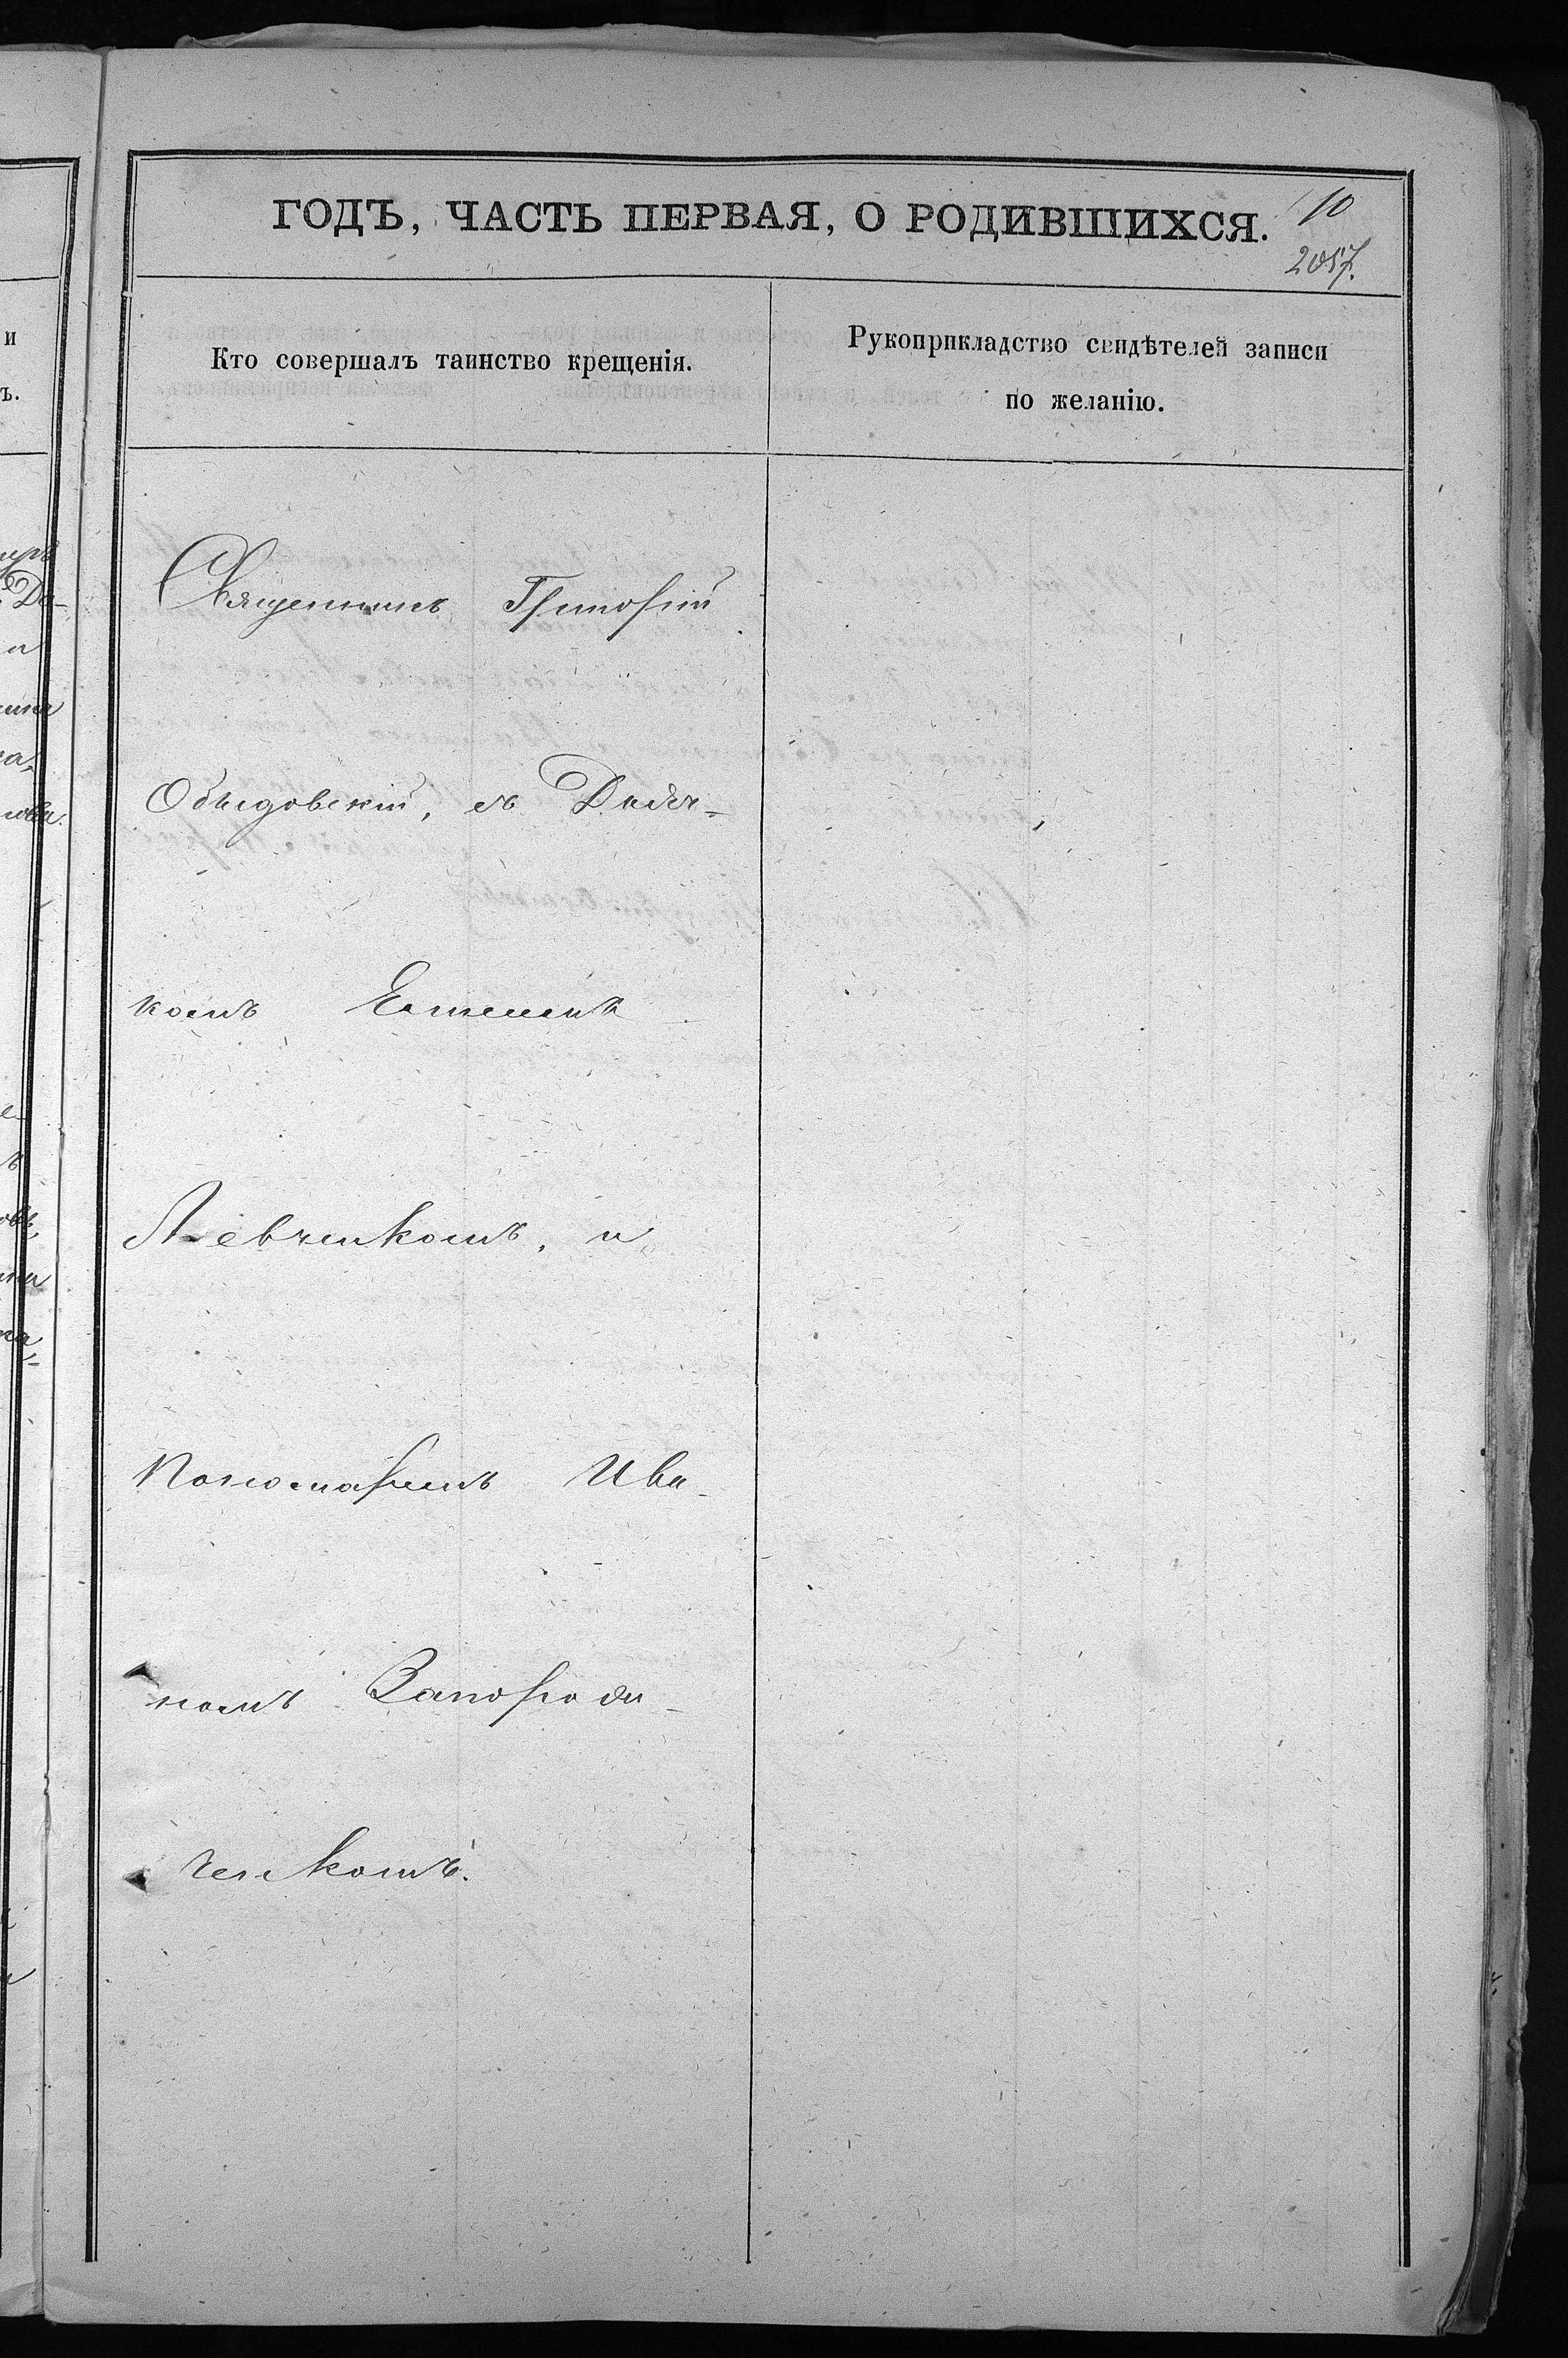 ГОДЪ, ЧАСТЬ ПЕРВАЯ, О РОДИВШИХСЯ.
10
2057.
Кто совершалъ таинство крещенія.
Рукоприкладство свидѣтелей записи
по желанію.
Священникъ Григорій
Обѣдовскій, съ Дьяч-
комъ
Левченкомъ, и
Пономаремъ Ива-
номъ
ченкомъ.